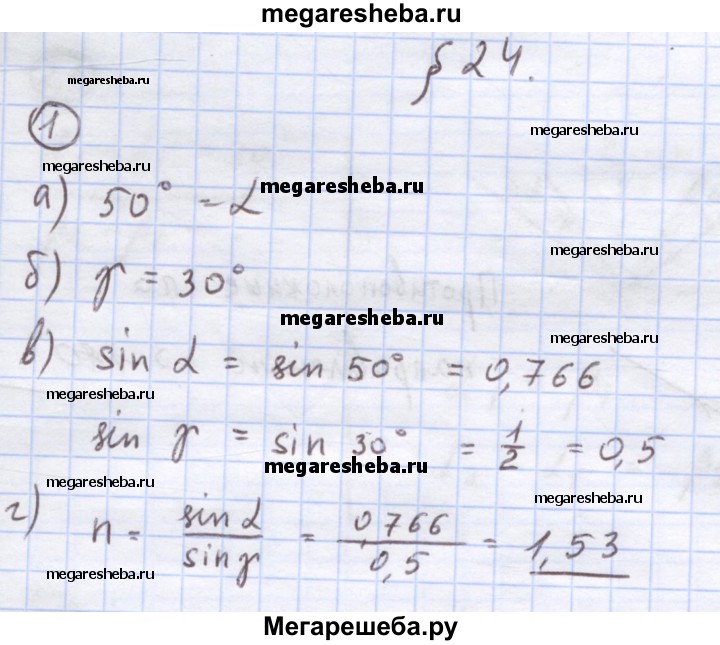 megaresheba.ru
§ 24.
megaresheba.ru
megaresheba.ru
1
megaresheba.ru
megaresheba.ru
а) 50° = α
megaresheba.ru
б) γ = 30°
megaresheba.ru
megaresheba.ru
в) sin α = sin 50° = 0,766
megaresheba.ru
sin γ = sin 30° = 1/2 = 0,5
megaresheba.ru
megaresheba.ru
megaresheba.ru
г) n = sin α / sin γ = 0,766 / 0,5 = 1,53
megaresheba.ru
megaresheba.ru
Мегарешеба.ру